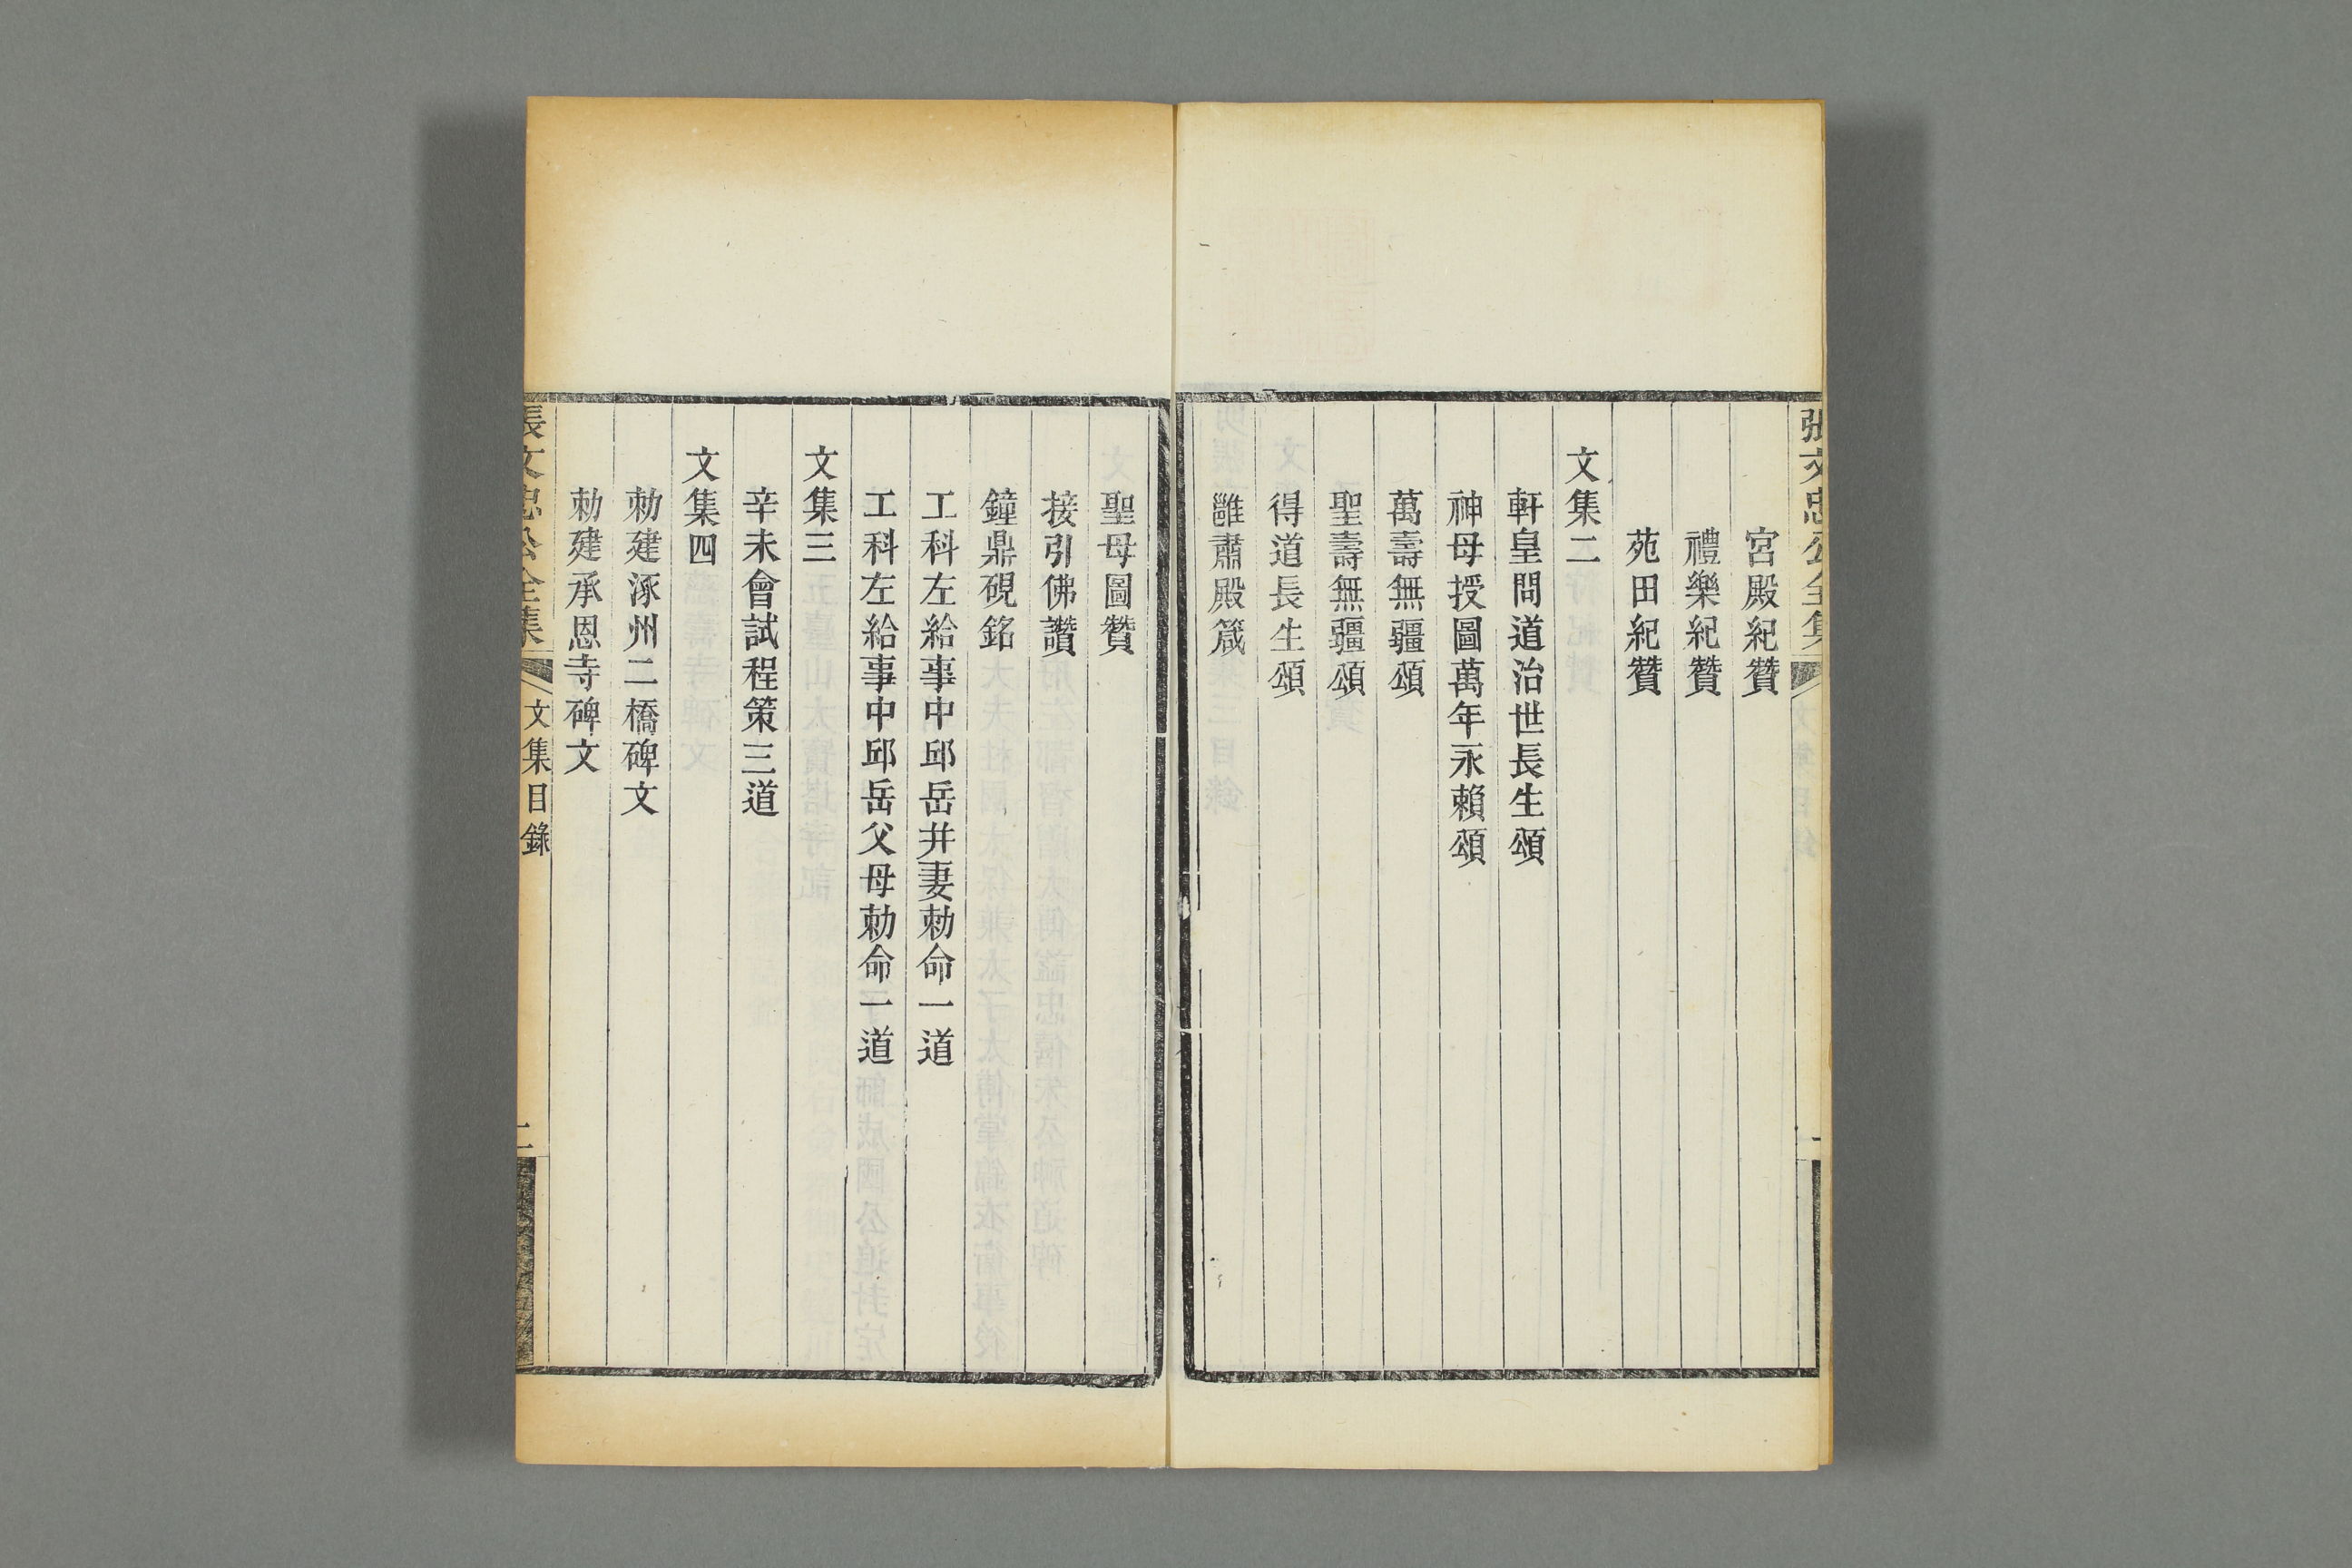 張文忠公全集
一
宮殿紀贊
禮樂紀贊
苑田紀贊
文集二
軒皇問道治世長生頌
神母授圖萬年永賴頌
萬壽無疆頌
聖壽無疆頌
得道長生頌
雝肅殿箴
聖母圖贊
接引佛讚
鐘鼎硯銘
工科左給事中邱岳并妻勅命一道
工科左給事中邱岳父母勅命一道
文集三
辛未會試程策三道
文集四
勅建涿州二橋碑文
勅建承恩寺碑文
張文忠公全集
文集目錄
二